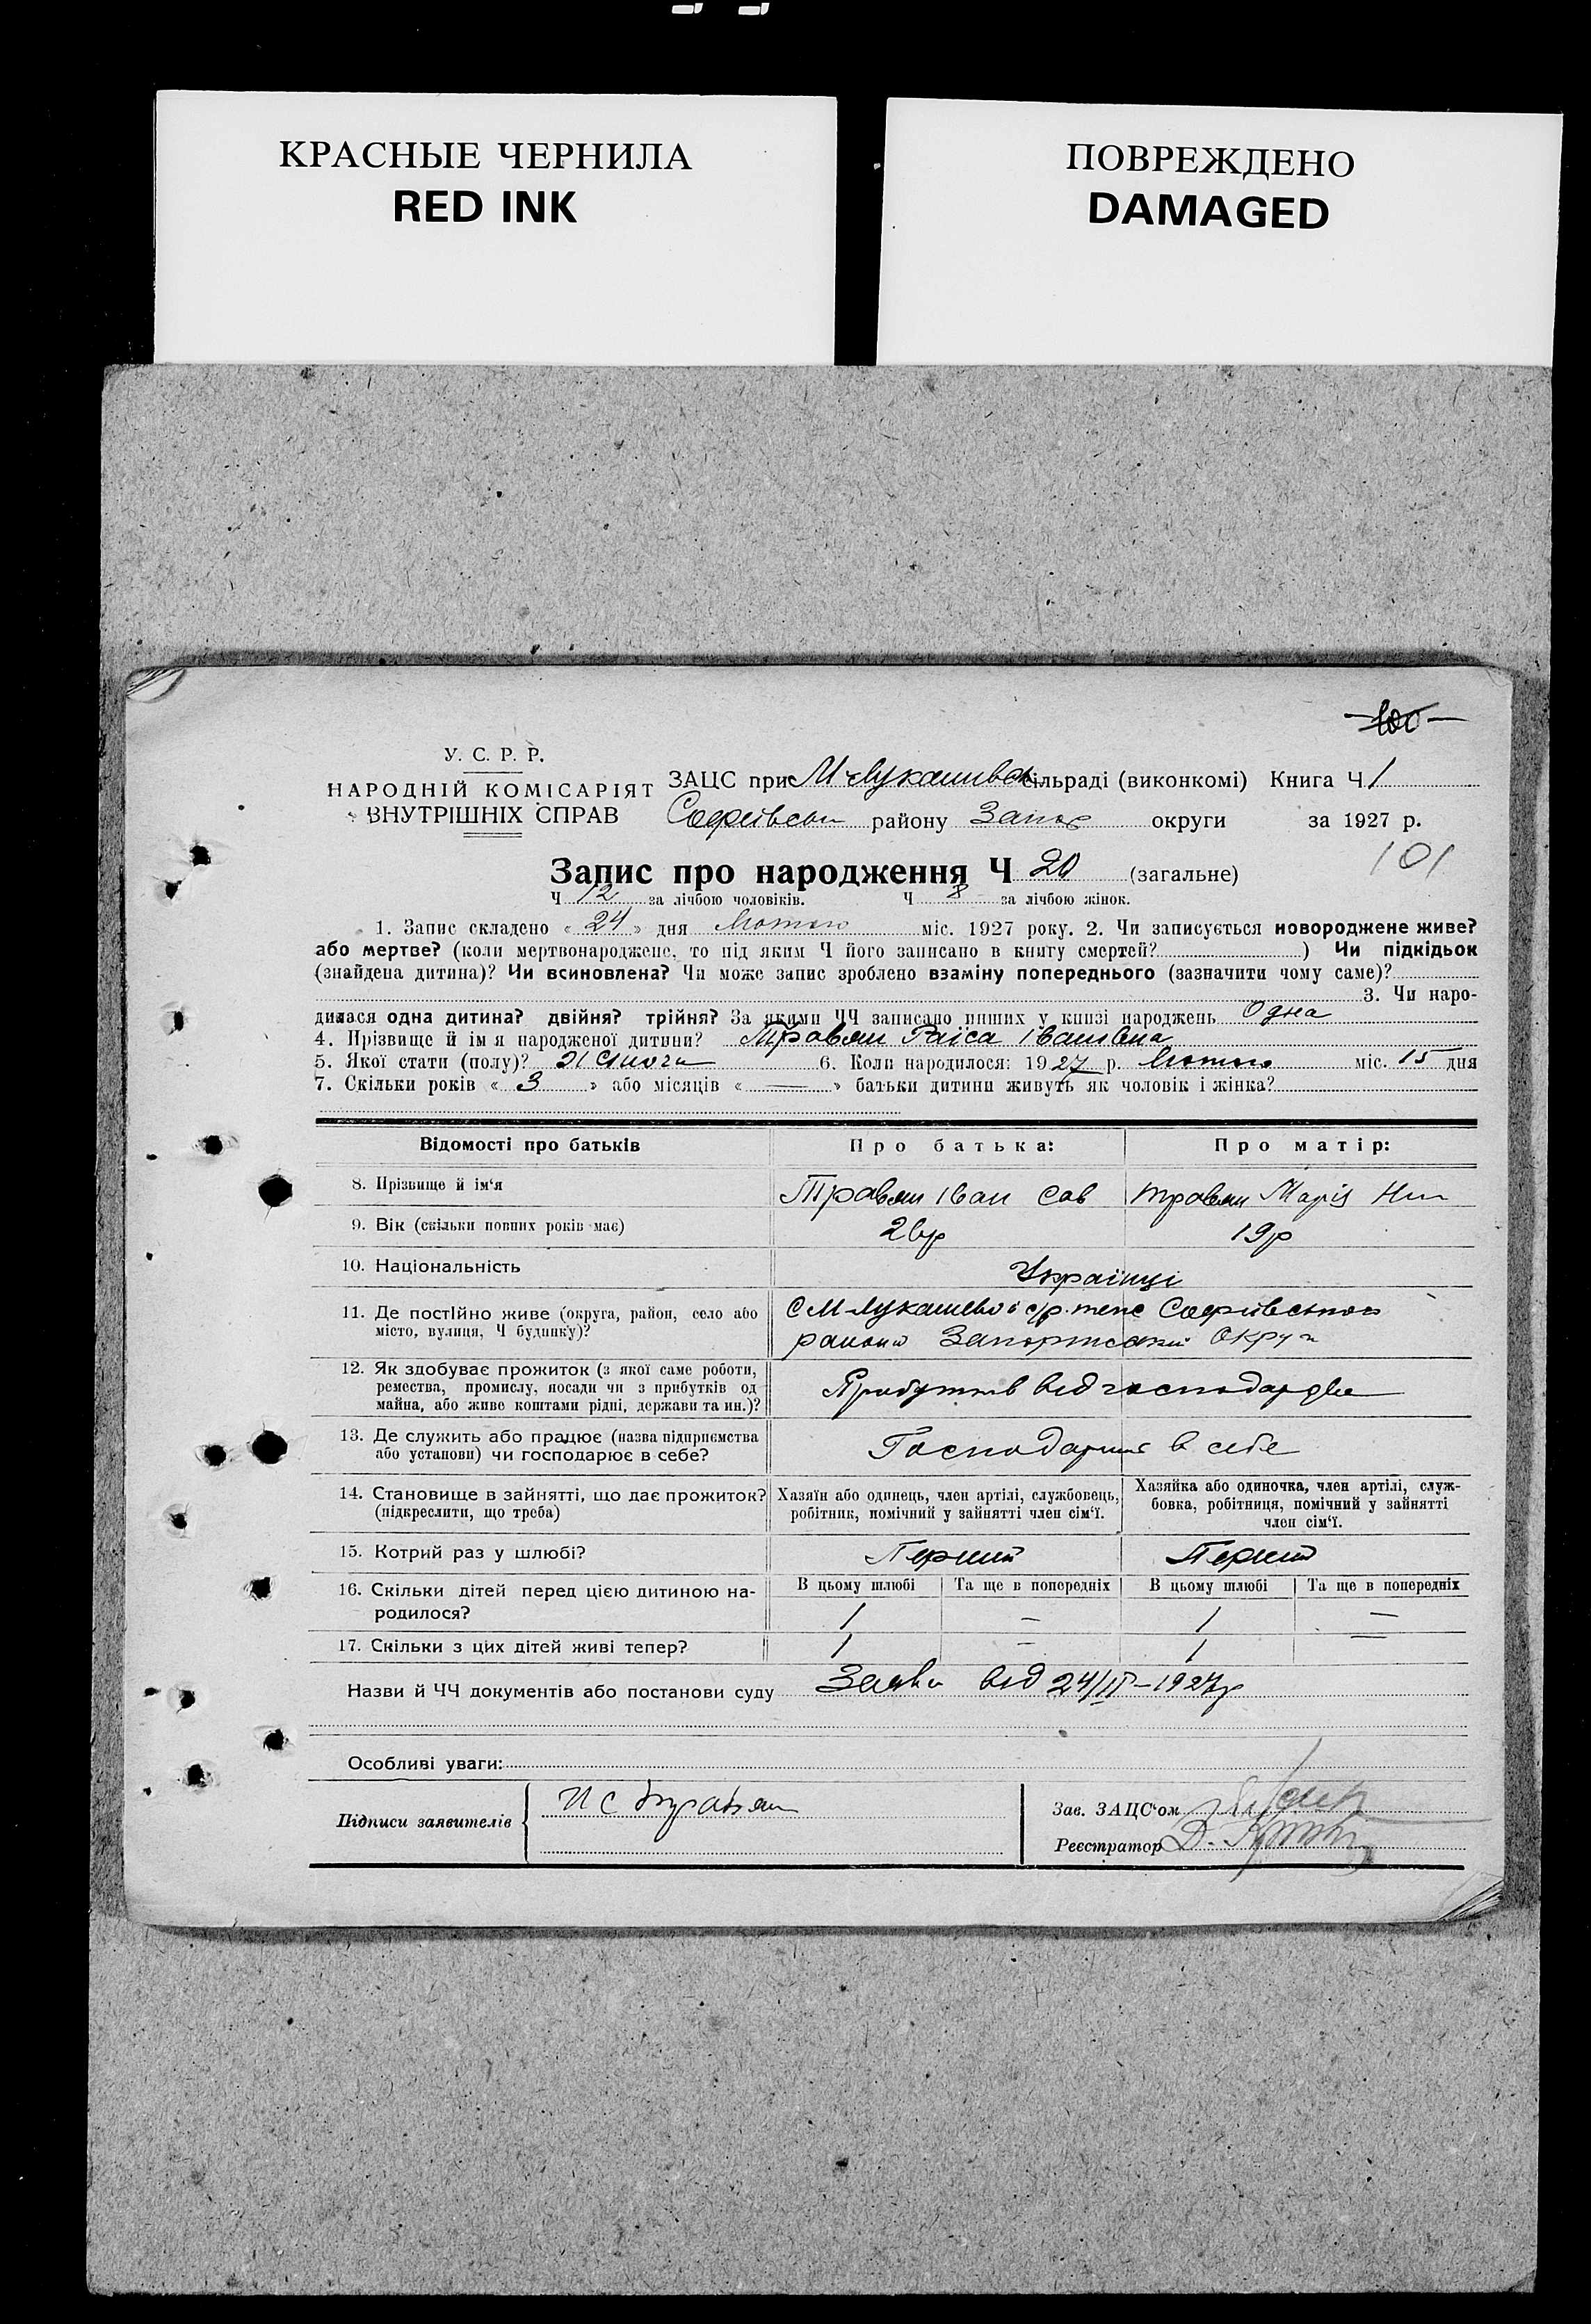 КРАСНЫЕ ЧЕРНИЛА
RED INK
ПОВРЕЖДЕНО
DAMAGED
100
У. С. Р. Р.
НАРОДНІЙ КОМІСАРІЯТ
ВНУТРІШНІХ СПРАВ
ЗАЦС при М-Лукашивск сільраді (виконкомі) Книга Ч 1
Софиівськ району Запор округи за 1927 р.
101
Запис про народження Ч 20 (загальне)
Ч 12 за лічбою чоловіків. Ч 8 за лічбою жінок.
1. Запис складено « 24 » дня Лютого міс. 1927 року. 2. Чи записується новороджене живе?
або мертве? (коли мертвонароджене, то під яким Ч його записано в книгу смертей? ) Чи підкідьок
(знайдена дитина)? Чи всиновлена? Чи може запис зроблено взаміну попереднього (зазначити чому саме)?
3. Чи наро-
дилася одна дитина? двійня? трійня? За якими ЧЧ записано инших у книзі народжень Одна
4. Прізвище й ім я народженої дитини? Травян Раіса Івановна
5. Якої стати (полу)? Жіноча 6. Коли народилося: 1927 р. Лютого міс. 15 дня
7. Скільки років « 3 » або місяців « — » батьки дитини живуть як чоловік і жінка?
Відомості про батьків Про батька: Про матір:
8. Прізвище й ім'я Травян Іван Сав Травян Марія
9. Вік (скільки повних років має) 26р 19р
10. Національність Українці
11. Де постійно живе (округа, район, село або
місто, вулиця, Ч будинку)?
С М-Лукашево с/р Софиівського
района Запоріжської Округи
12. Як здобуває прожиток (з якої саме роботи,
ремества, промислу, посади чи з прибутків од
майна, або живе коштами рідні, держави та ин.)?
Прибутків від господарства
13. Де служить або працює (назва підприємства
або установи) чи господарює в себе?
Господарює в себе
14. Становище в зайнятті, що дає прожиток?
(підкреслити, що треба)
Хазяїн або одинець, член артілі, службовець,
робітник, помічний у зайнятті член сім'ї.
Хазяйка або одиночка, член артілі, служ-
бовка, робітниця, помічний у зайнятті
член сім'ї.
15. Котрий раз у шлюбі? Перший Перший
16. Скільки дітей перед цією дитиною на-
родилося?
В цьому шлюбі Та ще в попередніх В цьому шлюбі Та ще в попередніх
1 — 1 —
17. Скільки з цих дітей живі тепер? 1 — 1 —
Назви й ЧЧ документів або постанови суду Заява від 24/II-1927р
Особливі уваги:
Підписи заявителів И С Травян
Зав. ЗАЦС'ом
Реєстратор Д.